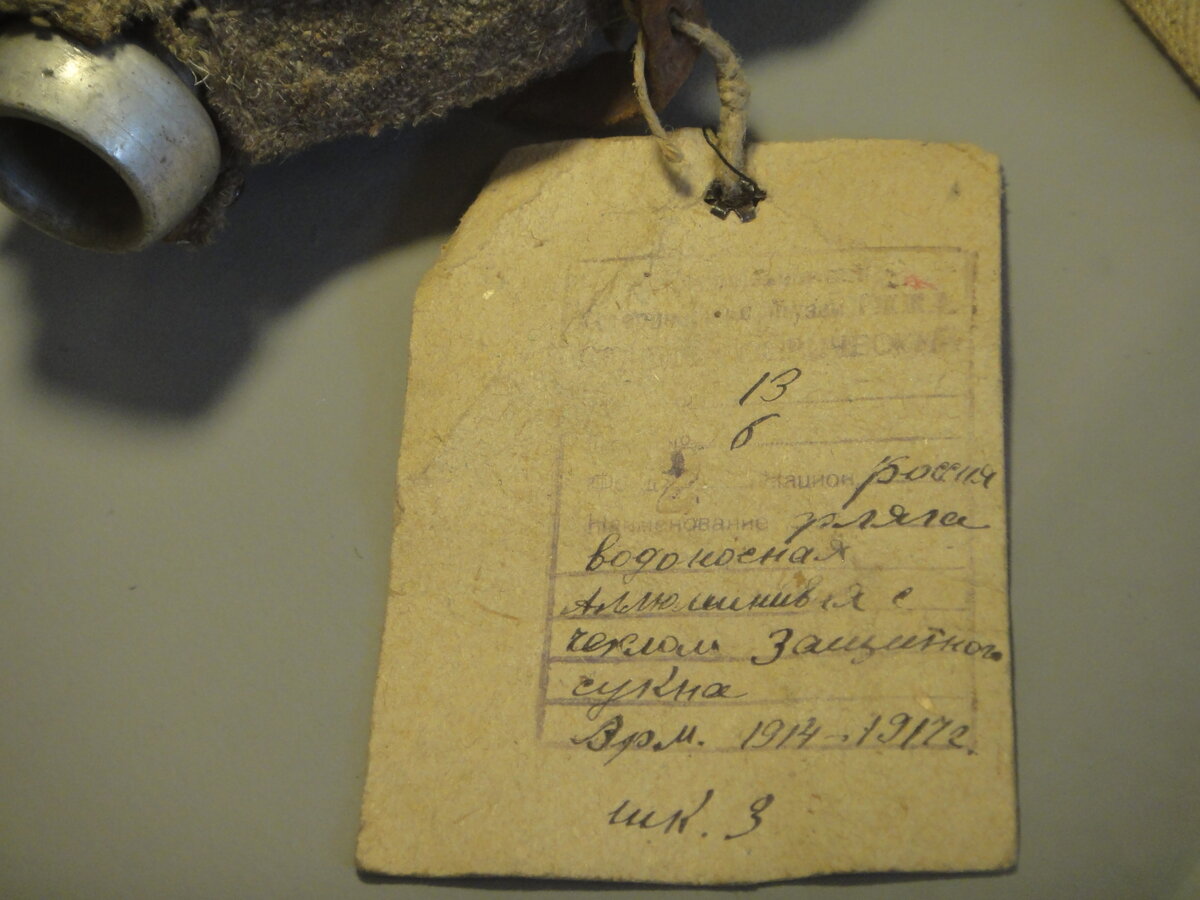 Музей
13
б
Национ. Россия
Наименование фляга
водоносная
Аллюминивая с
чехлом Защитного
сукна
Врм. 1914-1917г.
шк. 3